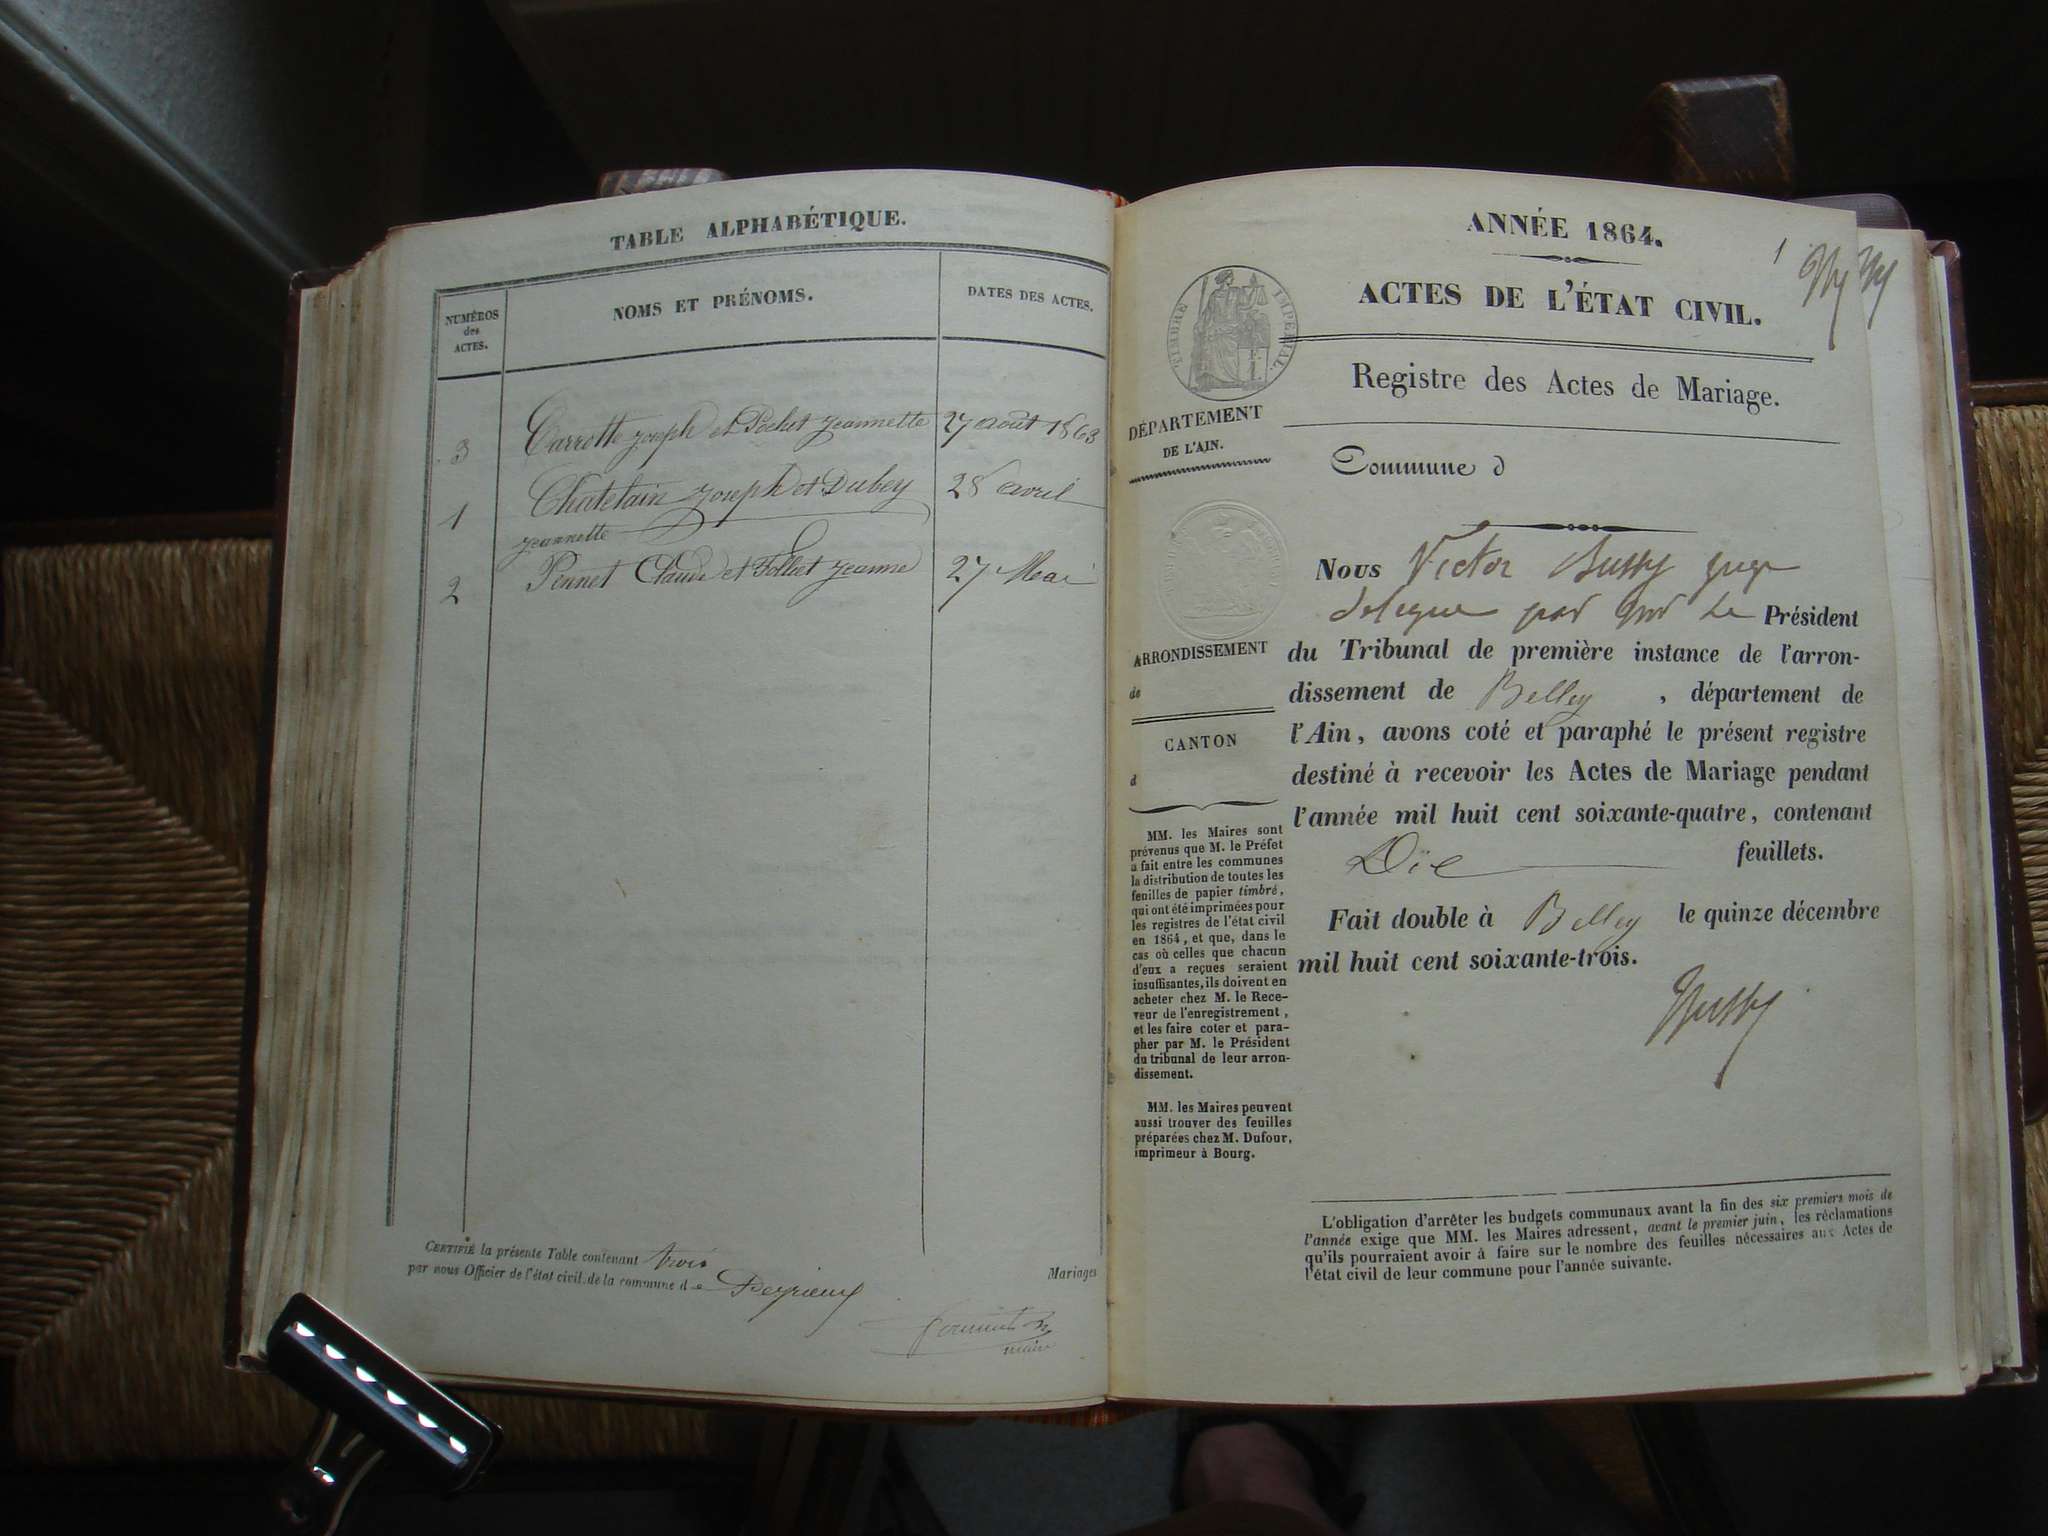 TABLE ALPHABÉTIQUE.
NUMÉROS
des
ACTES.
NOMS ET PRÉNOMS.
DATES DES ACTES.
3 Carrotte joseph et Pochet jeannette 27 août 1863
1 Chatelain joseph et Dubey 28 avril
jeannette
2 Pennet Claude et Folliet jeanne 27 Mai
CERTIFIÉ la présente Table contenant trois Mariages
par nous Officier de l'état civil de la commune de Peyrieux
maire
ANNÉE 1864.
1
ACTES DE L'ÉTAT CIVIL.
TIMBRE IMPÉRIAL.
Registre des Actes de Mariage.
DÉPARTEMENT
DE L'AIN.
Commune d
ARRONDISSEMENT
de
CANTON
d
MM. les Maires sont
prévenus que M. le Préfet
a fait entre les communes
la distribution de toutes les
feuilles de papier timbré,
qui ont été imprimées pour
les registres de l'état civil
en 1864, et que, dans le
cas où celles que chacun
d'eux a reçues seraient
insuffisantes, ils doivent en
acheter chez M. le Rece-
veur de l'enregistrement,
et les faire coter et para-
pher par M. le Président
du tribunal de leur arron-
dissement.
MM. les Maires peuvent
aussi trouver des feuilles
préparées chez M. Dufour,
imprimeur à Bourg.
Nous Victor Bussy juge
delegue par le Président
du Tribunal de première instance de l'arron-
dissement de Belley , département de
l'Ain, avons coté et paraphé le présent registre
destiné à recevoir les Actes de Mariage pendant
l'année mil huit cent soixante-quatre, contenant
feuillets.
Fait double à Belley le quinze décembre
mil huit cent soixante-trois.
Bussy
L'obligation d'arrêter les budgets communaux avant la fin des six premiers mois de
l'année exige que MM. les Maires adressent, avant le premier juin, les réclamations
qu'ils pourraient avoir à faire sur le nombre des feuilles nécessaires aux Actes de
l'état civil de leur commune pour l'année suivante.